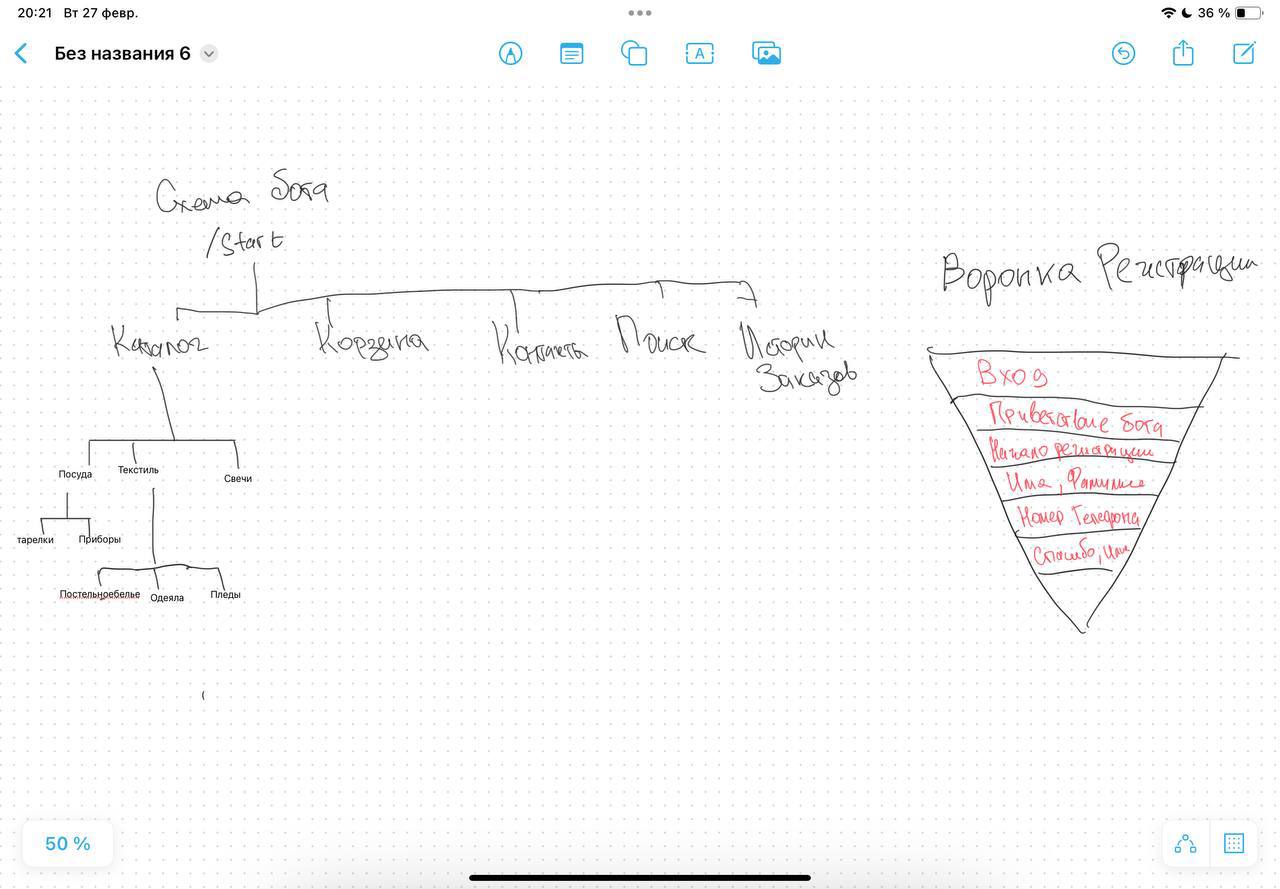 20:21 Вт 27 февр.
36 %
Без названия 6
A
Схема бота
/Start
Каталог
Корзина
Контакты
Поиск
История
Заказов
Посуда
Текстиль
Свечи
тарелки
Приборы
Постельноебелье
Одеяла
Пледы
Воронка Регистрации
Вход
Приветствие бота
Начало регистрации
Имя, Фамилия
Номер Телефона
Спасибо, Имя
50 %